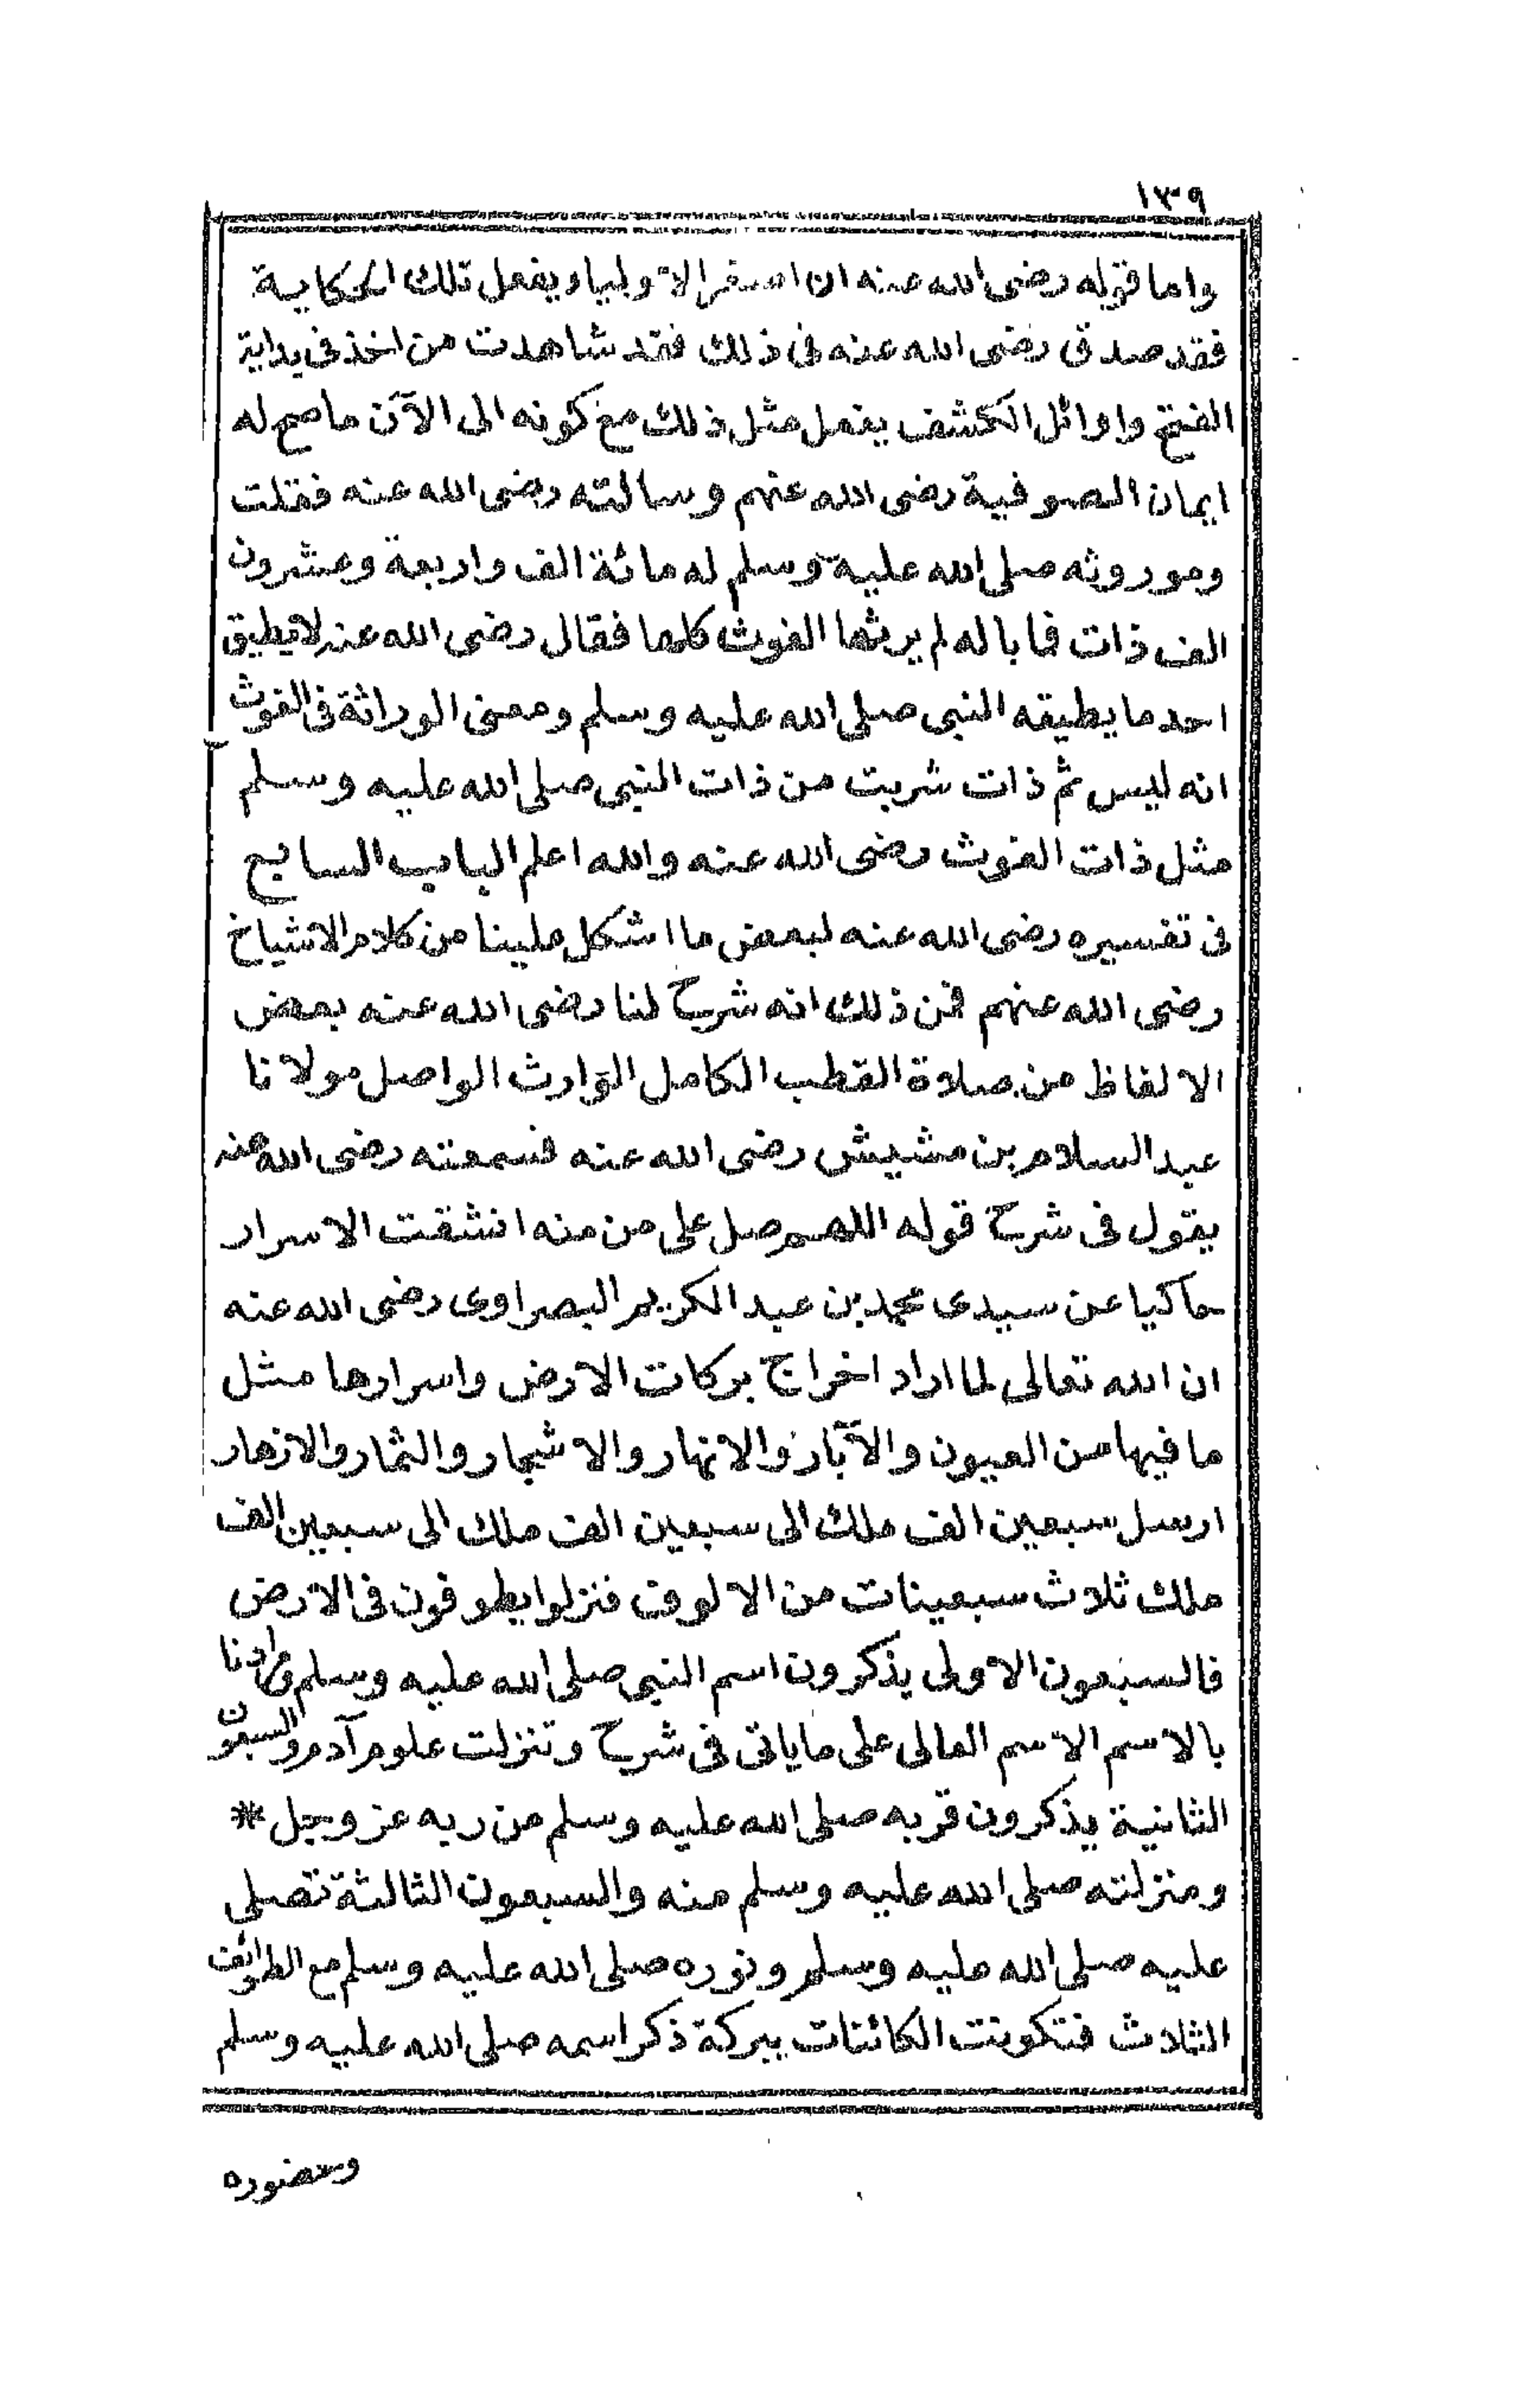 ١٣٩
واما قوله رضى الله عنه ان اصغر الاولياء يفعل تلك الحكاية
فقد صدق رضى الله عنه فى ذلك فقد شاهدت من اخذ فى بداية
الفتح واوائل الكشف يفعل مثل ذلك مع كونه الى الآن ما صح له
ايمان الصوفية رضى الله عنهم وسالته رضى الله عنه فقلت
وموروثه صلى الله عليه وسلم له مائة الف واربعة وعشرون
الف ذات فما باله لم يرثها الغوث كلها فقال رضى الله عنه لا يطيق
احد ما يطيقه النبى صلى الله عليه وسلم ومعنى الوراثة فى الغوث
انه ليس ثم ذات شربت من ذات النبى صلى الله عليه وسلم
مثل ذات الغوث رضى الله عنه والله اعلم الباب السابع
فى تفسيره رضى الله عنه لبعض ما اشكل علينا من كلام الاشياخ
رضى الله عنهم فمن ذلك انه شرح لنا رضى الله عنه بعض
الالفاظ من صلاة القطب الكامل الوارث الواصل مولانا
عبد السلام بن مشيش رضى الله عنه فسمعته رضى الله عنه
يقول فى شرح قوله اللهم صل على من منه انشقت الاسرار
حاكيا عن سيدى محمد بن عبد الكريم البصراوى رضى الله عنه
ان الله تعالى لما اراد اخراج بركات الارض واسرارها مثل
ما فيها من العيون والآبار والانهار والاشجار والثمار والازهار
ارسل سبعين الف ملك الى سبعين الف ملك الى سبعين الف
ملك ثلاث سبعينات من الالوف فنزلوا يطوفون فى الارض
فالسبعون الاولى يذكرون اسم النبى صلى الله عليه وسلم ومرادنا
بالاسم الاسم العالى على ما ياتى فى شرح وتنزلت علوم آدم والسبعون
الثانية يذكرون قربه صلى الله عليه وسلم من ربه عز وجل *
ومنزلته صلى الله عليه وسلم منه والسبعون الثالثة تصلى
عليه صلى الله عليه وسلم ونوره صلى الله عليه وسلم مع الطوائف
الثلاث فتكونت الكائنات ببركة ذكر اسمه صلى الله عليه وسلم
وحضوره